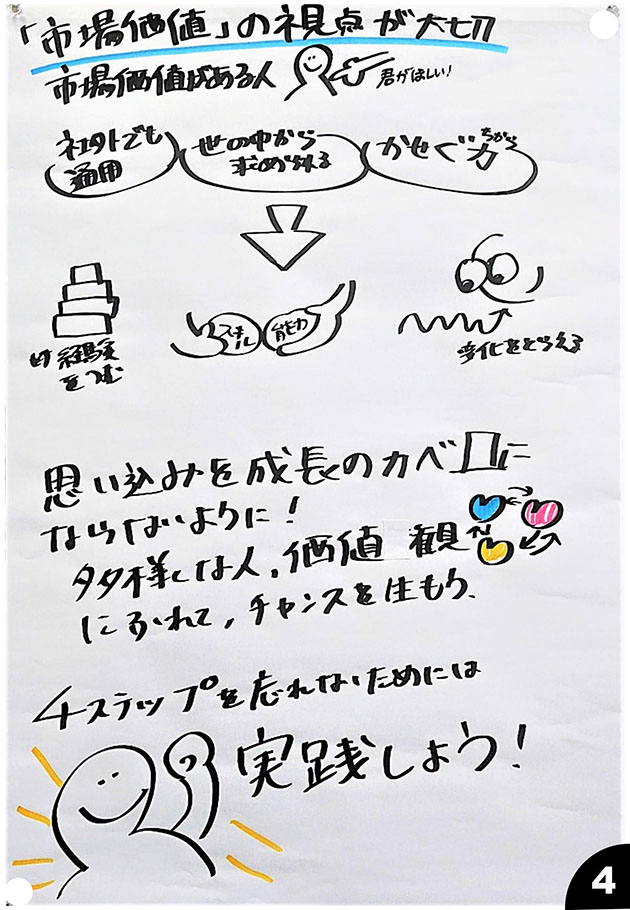 「市場価値」の視点が大切
市場価値がある人
君がほしい!
社外でも
通用
世の中から
求められる
かせぐ力
ちから
スキル
能力
経験
をつむ
変化をとらえる
思い込みを成長のカベに
ならないように!
多様な人、価値観
にふれて、チャンスを生もう、
4ステップを忘れないためには
実践しよう!
4